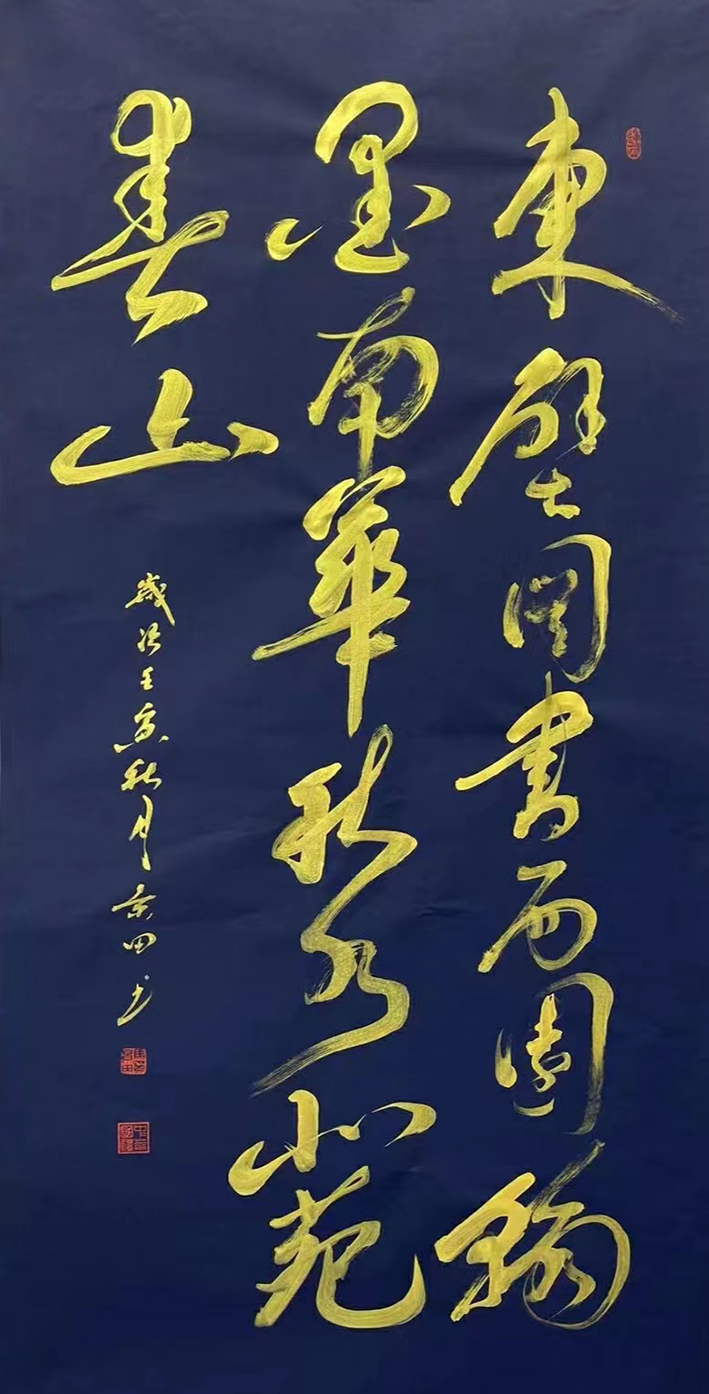 東壁圖書西園翰
墨南華秋水北苑
春山
歲次壬寅秋月京田書